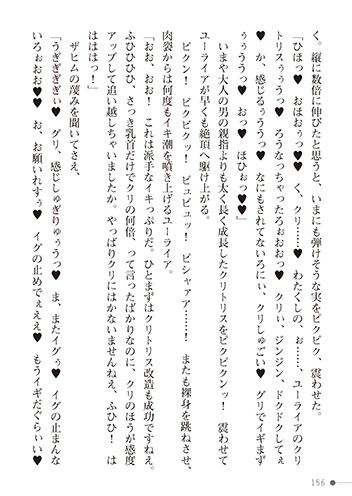 く。縦に数倍に伸びたと思うと、いまにも弾けそうな実をピクピク、震わせた。
「ひほっ♥　おほぉっ♥♥　く、クリ……♥　わたくしの、ぉ……、ユーライアのクリ
トリスぅぅうっ♥　ろうなっちゃったろぉおおっ♥　クリぃ、ジンジン、ドクドクしてぇ
♥　か、感じるぅううっ♥　なにもされてないろにぃ、クリしゅごい♥　グリでイギまず
ぅぅううっ♥　おっ♥　ほひぉっ♥♥」
　いまや大人の男の親指よりも太く長く成長したクリトリスをピクピクンッ！　震わせて
ユーライアが早くも絶頂へ駆け上がる。
　ピクン！　ピクピクッ！　ピュピュッ！　ビシャァア……！　またも裸身を跳ねさせ、
肉裂からは何度もイキ潮を噴き上げるユーライア。
「おお、おお！　これは派手なイキっぷりだ。ひとまずはクリトリス改造も成功ですねぇ。
ふひひひ、さっき乳首だけでクリの何倍、って言ったばかりなのに、クリのほうが感度
アップして追い越しちゃいましたか。やっぱりクリにはかないませんねえ、ふひひ！　は
はははっ！」
　ザヒムの蔑みを聞いてさえ、
「うぎぎぎぎぃ♥　グリ、感じしゅぎりゅぅうっ♥　ま、またイグぅ♥　イグの止まんな
いろぉおお♥♥　お、お願いれすぅ♥　イグの止めでぇええ♥　もうイギだぐらぃぃ♥
156